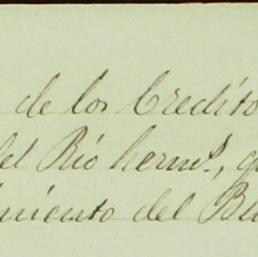 de los Credito
del Rio hermˢ., q
imiento del Bu